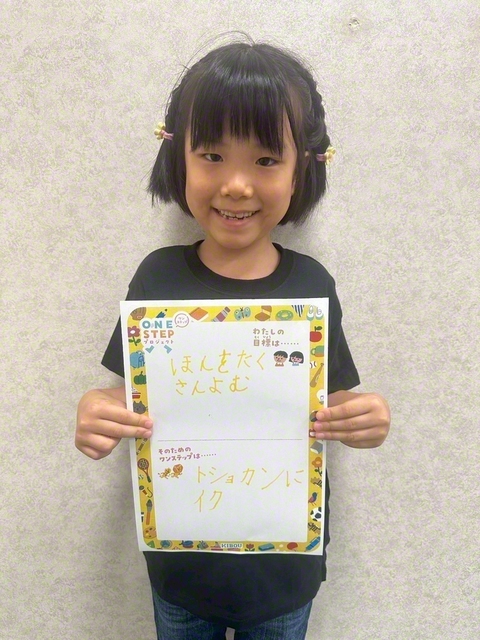 ONE
STEP
プロジェクト
わたしの
目標は……
ほんをたく
さんよむ
そのための
ワンステップは……
トショカンに
イク
KIBOU